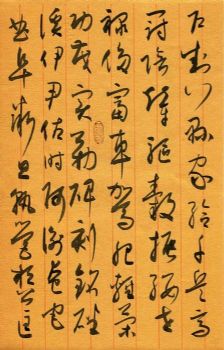 户封八縣家給千兵高
冠陪輦驅轂振纓世
祿侈富車駕肥輕策
功茂實勒碑刻銘磻
溪伊尹佐時阿衡奄宅
曲阜微旦孰營桓公匡